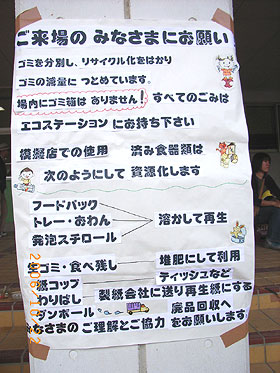 ご来場の みなさまにお願い
ゴミを分別し、リサイクル化をはかり
ゴミの減量に つとめています。
場内にゴミ箱は ありません! すべてのごみは
エコステーション にお持ち下さい
模擬店での使用 済み食器類は
次のようにして 資源化します
フードパック
トレー・おわん
発泡スチロール
溶かして再生
生ゴミ・食べ残し
堆肥にして利用
紙コップ
わりばし
製紙会社に送り再生紙にする
ティッシュなど
ダンボール
廃品回収へ
みなさまの ご理解とご協力 をお願いします